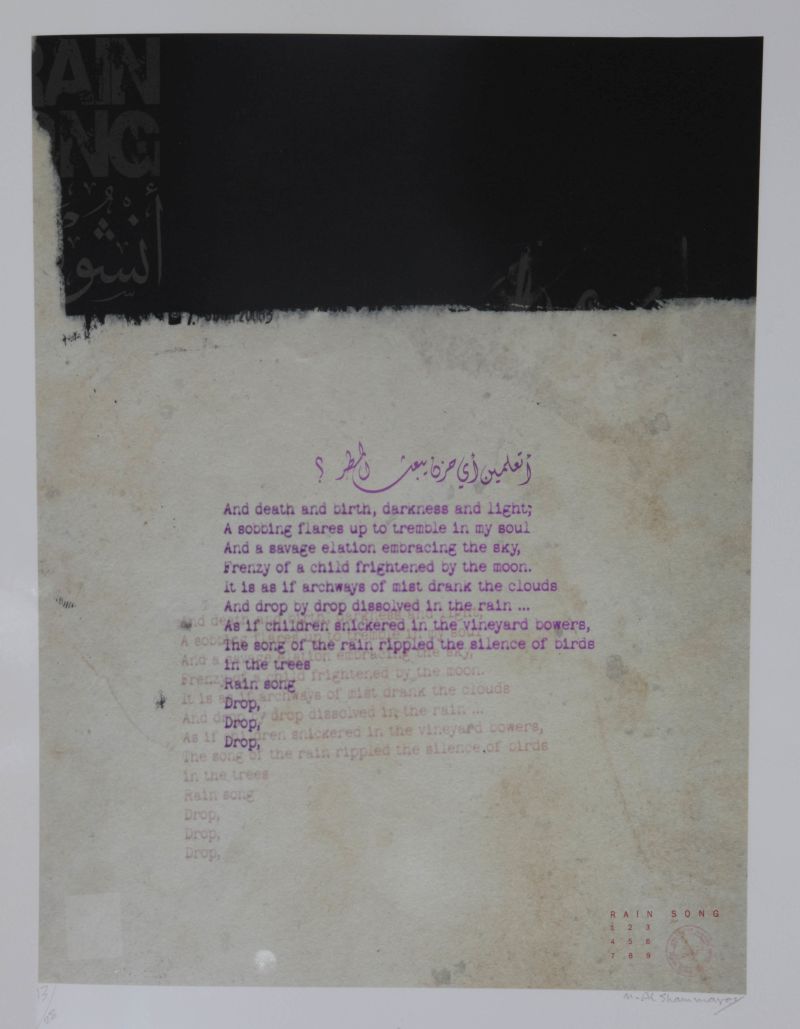 RAIN
SONG
أنشو
أتعلمين أي حزن يبعث المطر ؟
And death and birth, darkness and light;
A sobbing flares up to tremble in my soul
And a savage elation embracing the sky,
Frenzy of a child frightened by the moon.
It is as if archways of mist drank the clouds
And drop by drop dissolved in the rain ...
As if children snickered in the vineyard bowers,
The song of the rain rippled the silence of birds
in the trees
Rain song
Drop,
Drop,
Drop,
And death and birth, darkness and light;
A sobbing flares up to tremble in my soul
And a savage elation embracing the sky,
Frenzy of a child frightened by the moon.
It is as if archways of mist drank the clouds
And drop by drop dissolved in the rain ...
As if children snickered in the vineyard bowers,
The song of the rain rippled the silence of birds
in the trees
Rain song
Drop,
Drop,
Drop,
RAIN SONG
1 2 3
4 5 6
7 8 9
13/
68
M. Al Shammarey